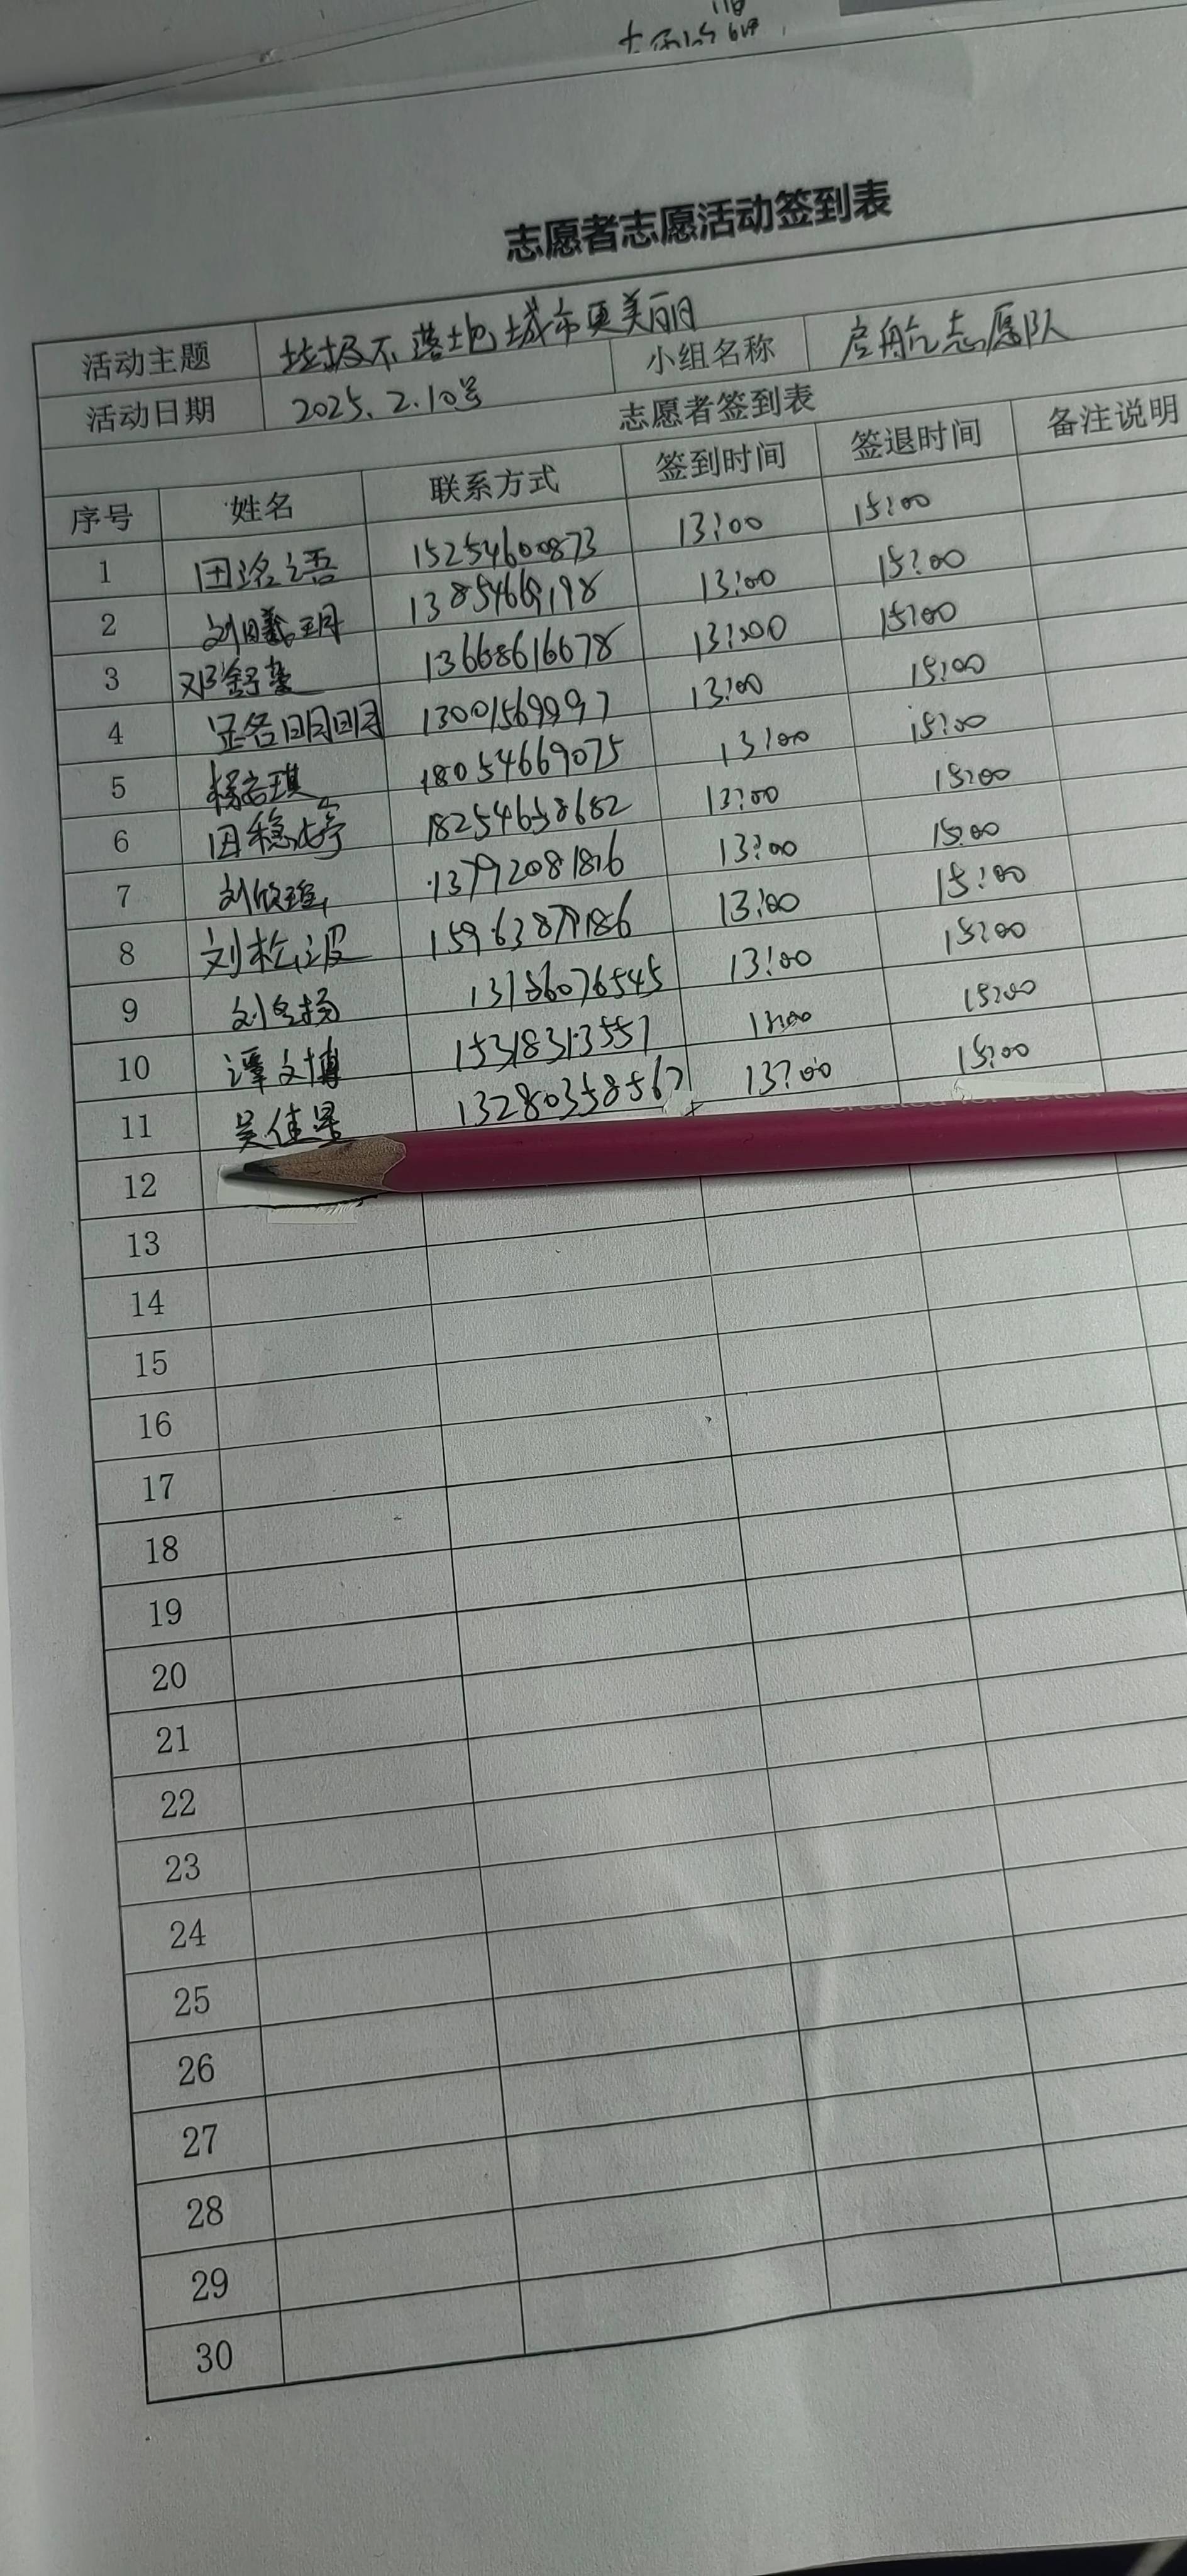 志愿者志愿活动签到表
活动主题 垃圾不落地城市更美丽 小组名称 启航志愿队
活动日期 2025.2.10号
志愿者签到表
序号 姓名 联系方式 签到时间 签退时间 备注说明
1 田洺语 15254600873 13:00 15:00
2 刘曦玥 13854669198 13:00 15:00
3 邓舒 13668616678 13:00 15:00
4 13001569997 13:00 15:00
5 杨 琪 18054669075 13:00 15:00
6 田稳婷 18254658682 13:00 15:00
7 刘欣 13792081816 13:00 15:00
8 刘松波 15963879186 13:00 15:00
9 刘 扬 13156076545 13:00 15:00
10 谭文博 15318313557 13:00 15:00
11 吴佳星 13280358567 13:00 15:00
12
13
14
15
16
17
18
19
20
21
22
23
24
25
26
27
28
29
30